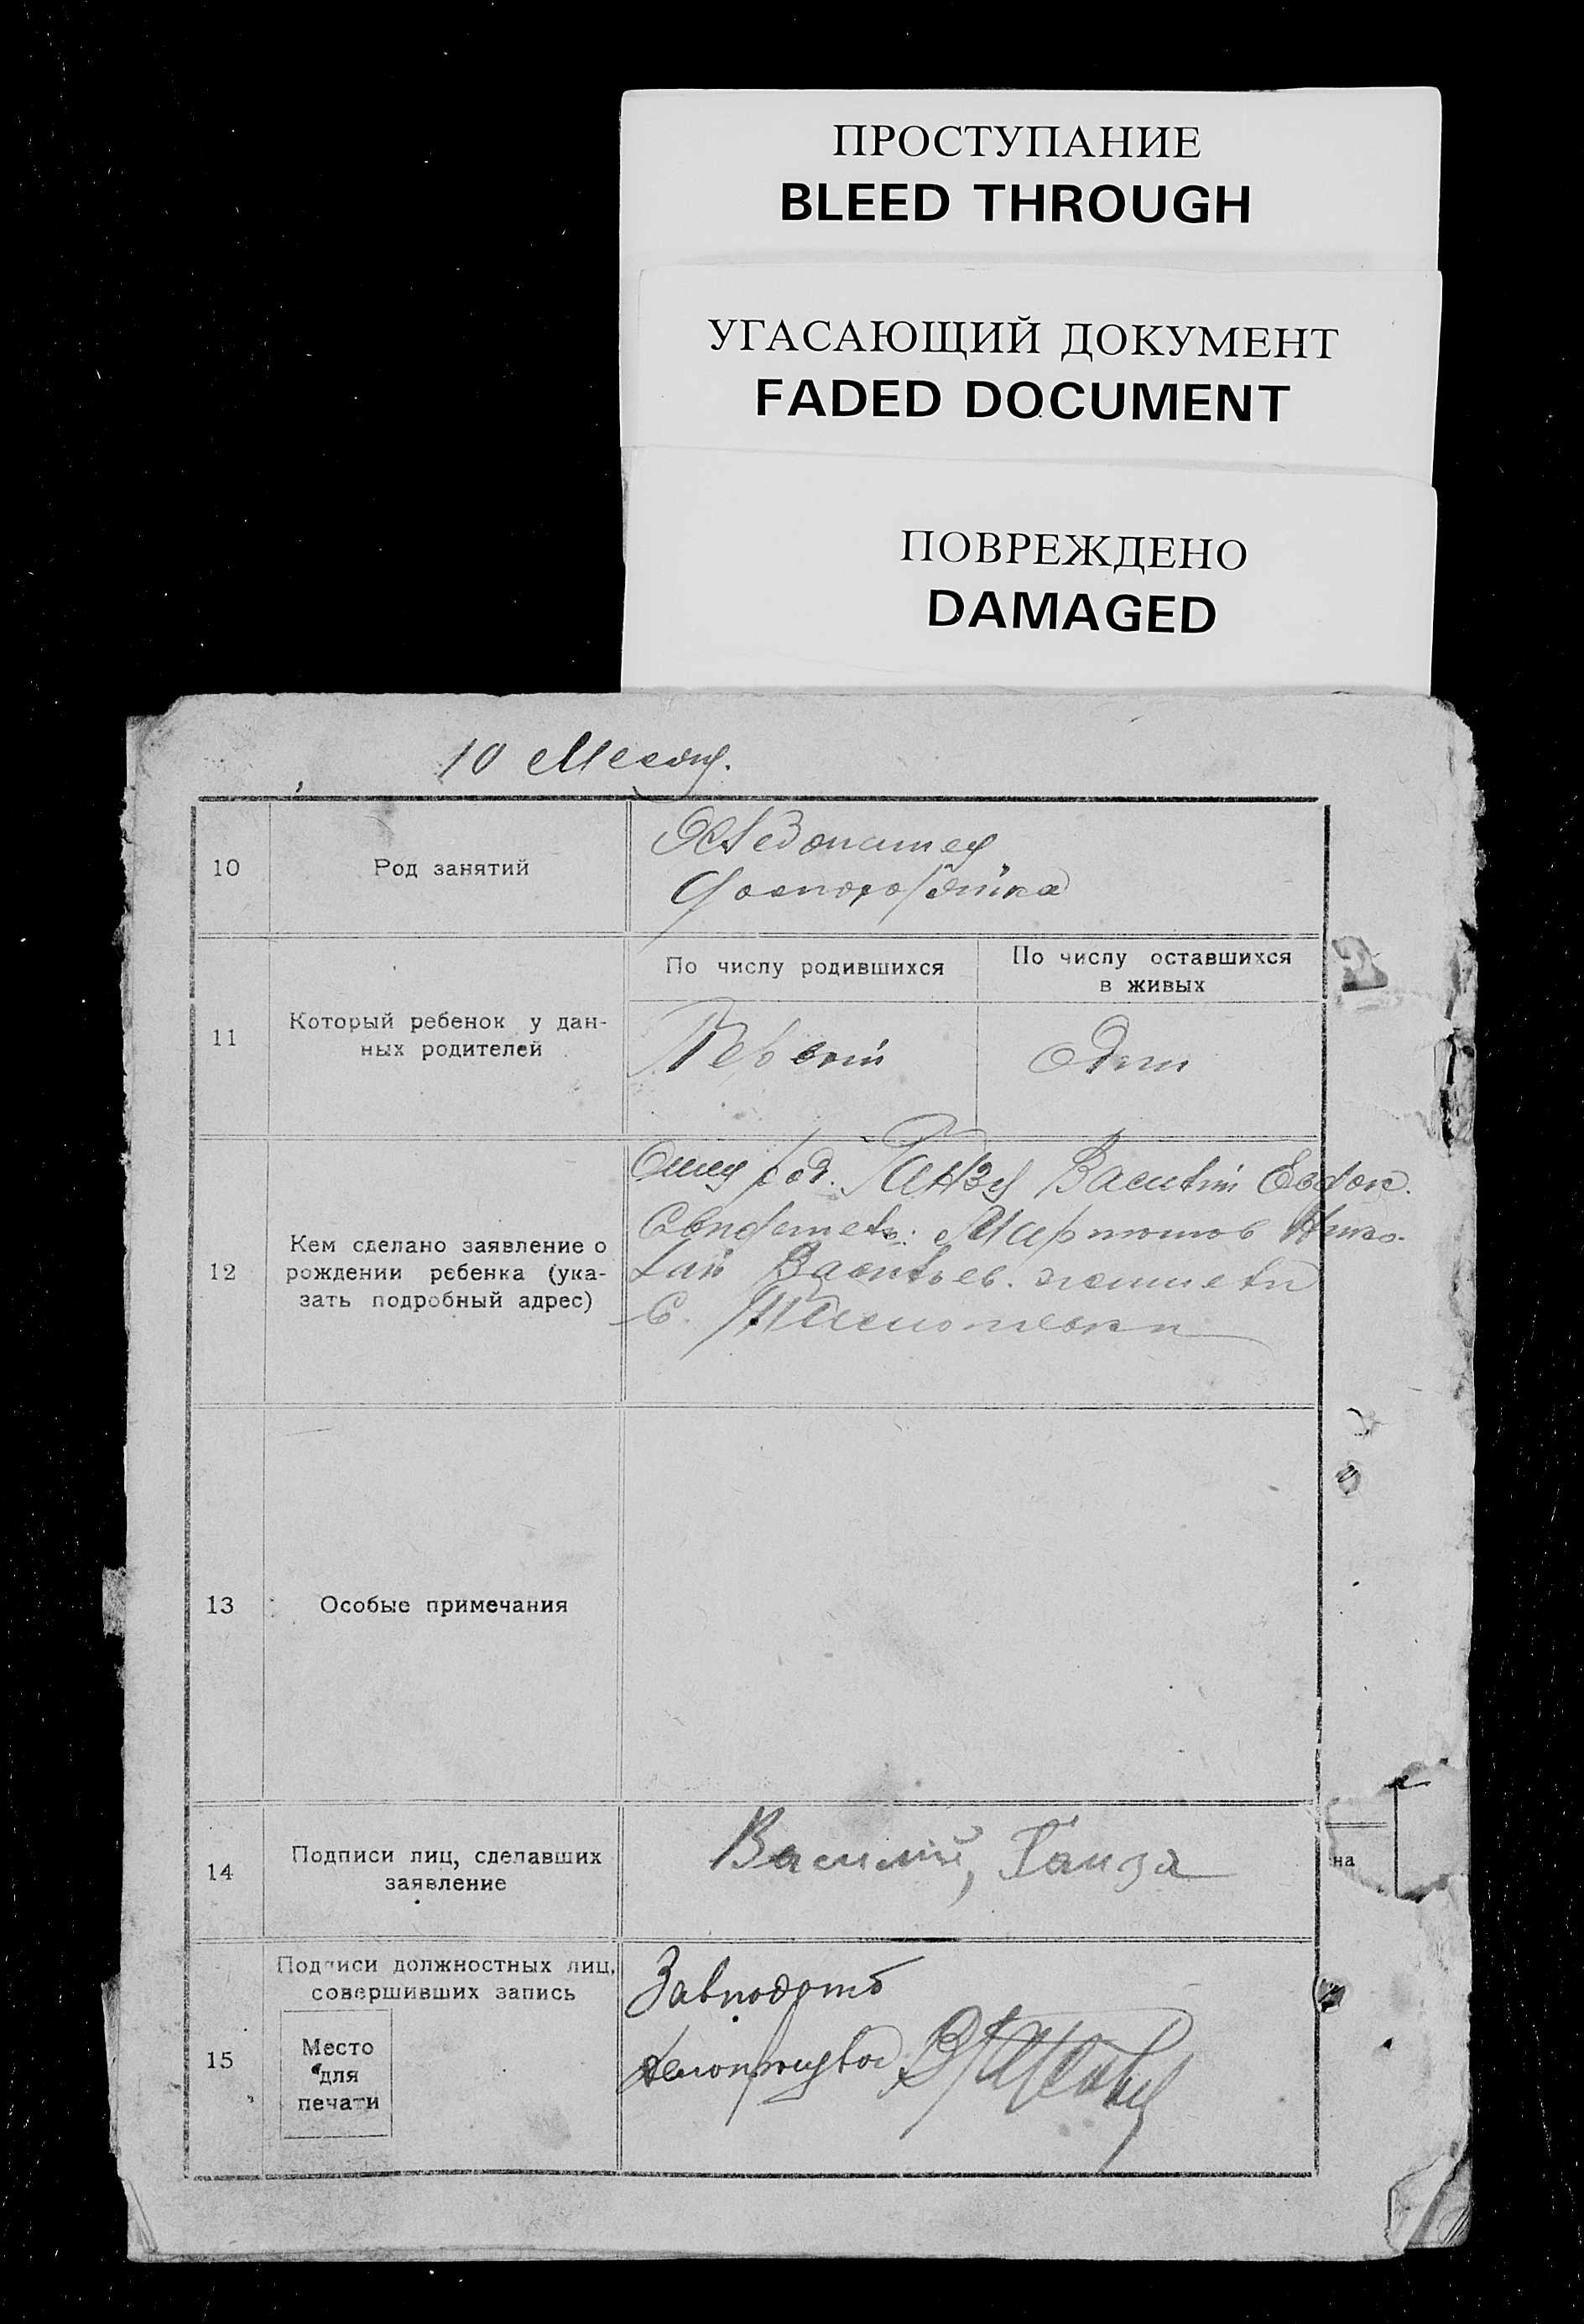 ПРОСТУПАНИЕ
BLEED THROUGH
УГАСАЮЩИЙ ДОКУМЕНТ
FADED DOCUMENT
ПОВРЕЖДЕНО
DAMAGED
10
10 Род занятий
Хлебопашец
11 Который ребенок у дан-
ных родителей
По числу родившихся
По числу оставшихся
в живых
Первый
Один
12 Кем сделано заявление о
рождении ребенка (ука-
зать подробный адрес)
Отец Ганза Василий Евдок.
Мартынов Нико-
лай Васильев. жители
с.
13 Особые примечания
14 Подписи лиц, сделавших
заявление
Василий, Ганза
на
15 Подписи должностных лиц,
совершивших запись
Место
для
печати
Завподотд